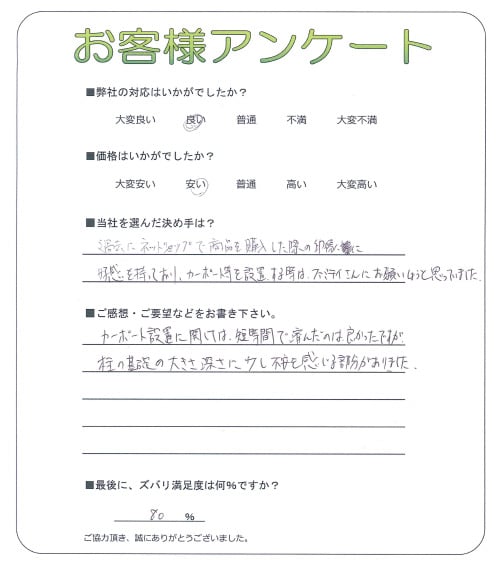 お客様アンケート
■弊社の対応はいかがでしたか？
大変良い 良い 普通 不満 大変不満
■価格はいかがでしたか？
大変安い 安い 普通 高い 大変高い
■当社を選んだ決め手は？
過去にネットショップで商品を購入した際の印象に
好感を持っており、カーポート等を設置する時は、ファミライさんにお願いしようと思っていました。
■ご感想・ご要望などをお書き下さい。
カーポート設置に関しては、短時間で済んだのは良かったですが
柱の基礎の大きさ深さに少し不安を感じる部分がありました。
■最後に、ズバリ満足度は何％ですか？
80 %
ご協力頂き、誠にありがとうございました。